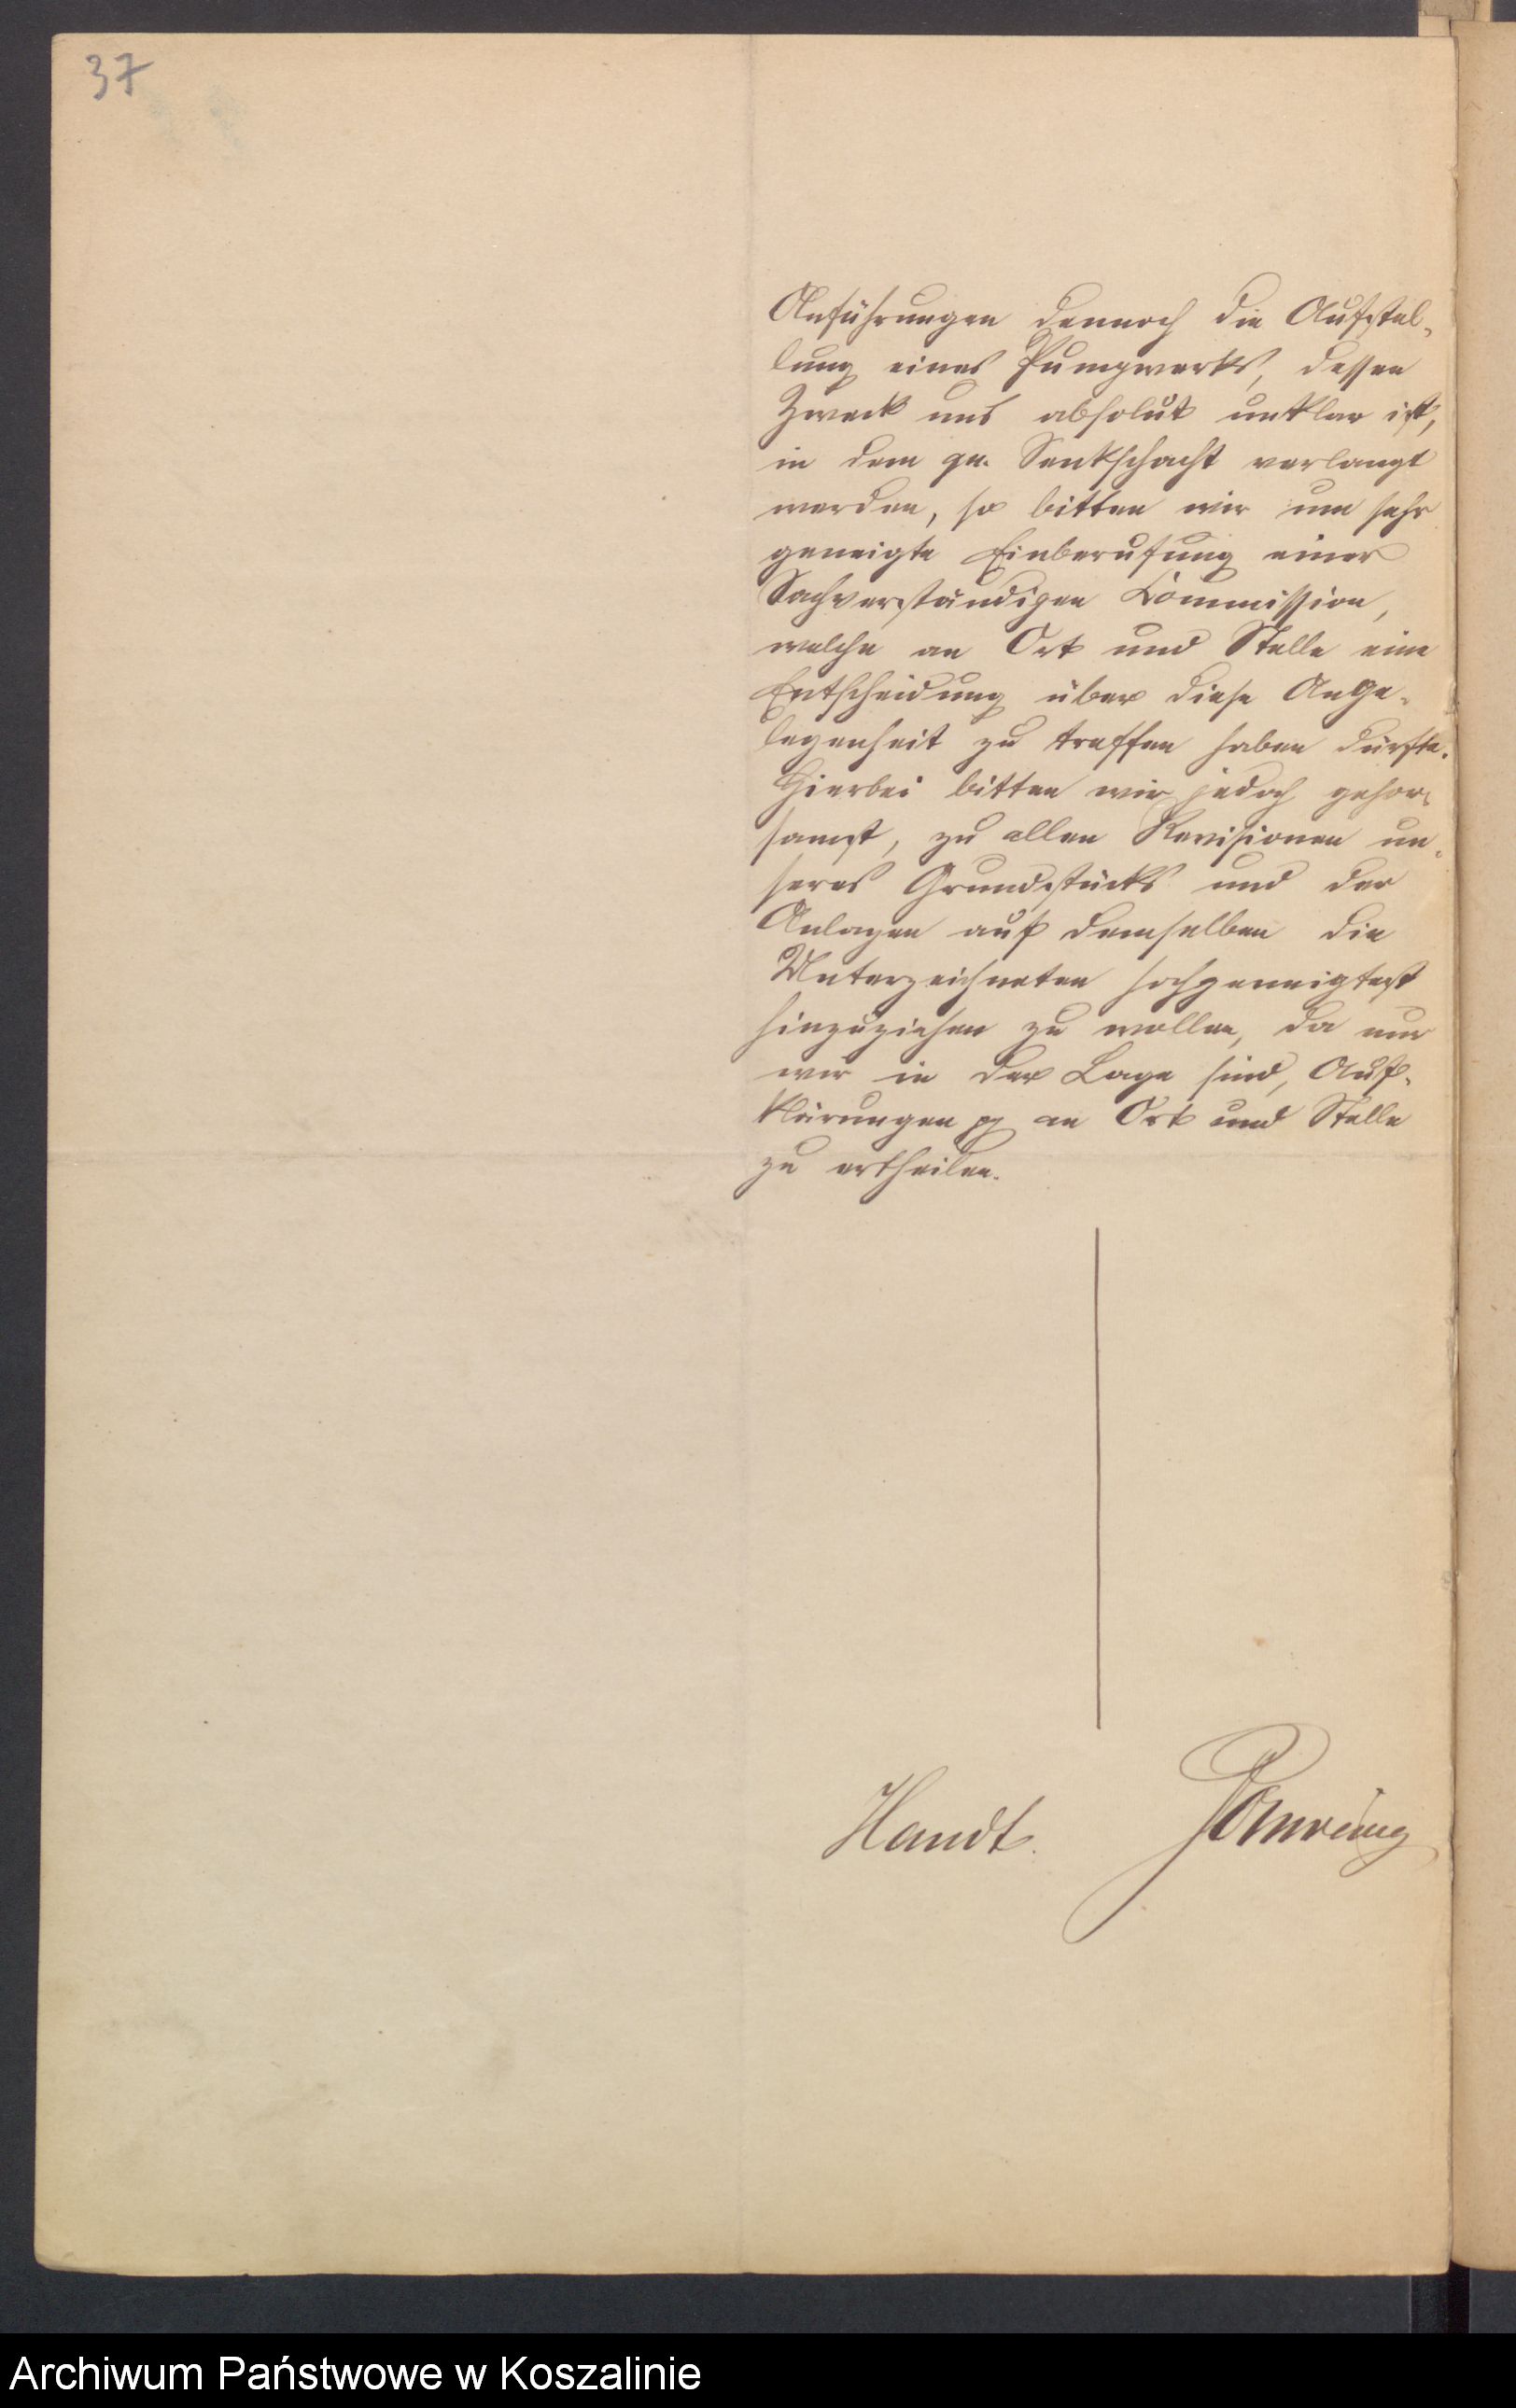 37
Anführungen dennoch die Aufstel-
lung eines Pumpwerks, dessen
Zweck uns absolut unklar ist,
in dem qu. Senkschacht verlangt
werden, so bitten wir um sehr
geneigte Einberufung einer
Sachverständigen Commission,
welche an Ort und Stelle eine
Entscheidung über diese Ange-
legenheit zu treffen haben dürfte.
Hierbei bitten wir jedoch gehor-
samst, zu allen Revisionen un-
seres Grundstücks und der
Anlagen auf demselben die
Unterzeichneten hochgeneigtest
hinzuziehen zu wollen, da nur
wir in der Lage sind, Auf-
klärungen pp an Ort und Stelle
zu ertheilen.
Handt.
Archiwum Państwowe w Koszalinie